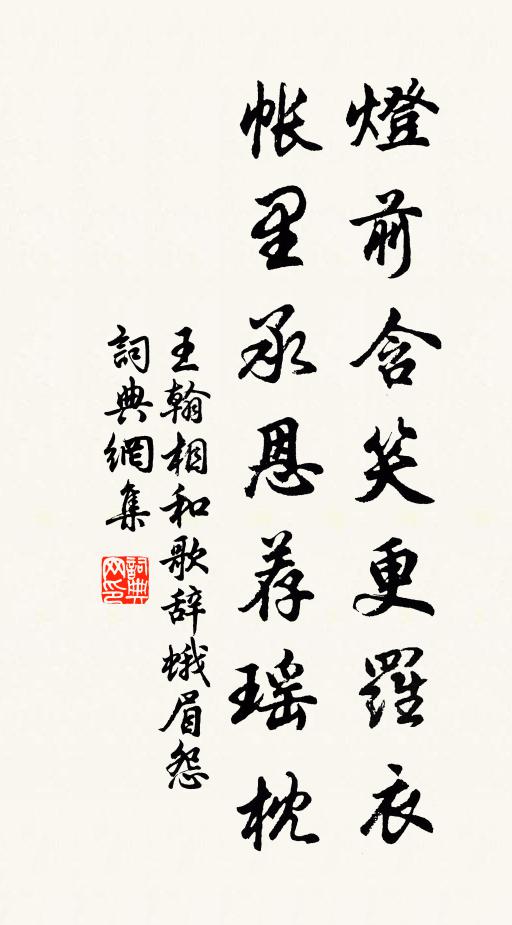 燈前含笑更羅衣
帐里承恩荐瑶枕
王翰相和歌辞蛾眉怨
詞典網集
詞典网印